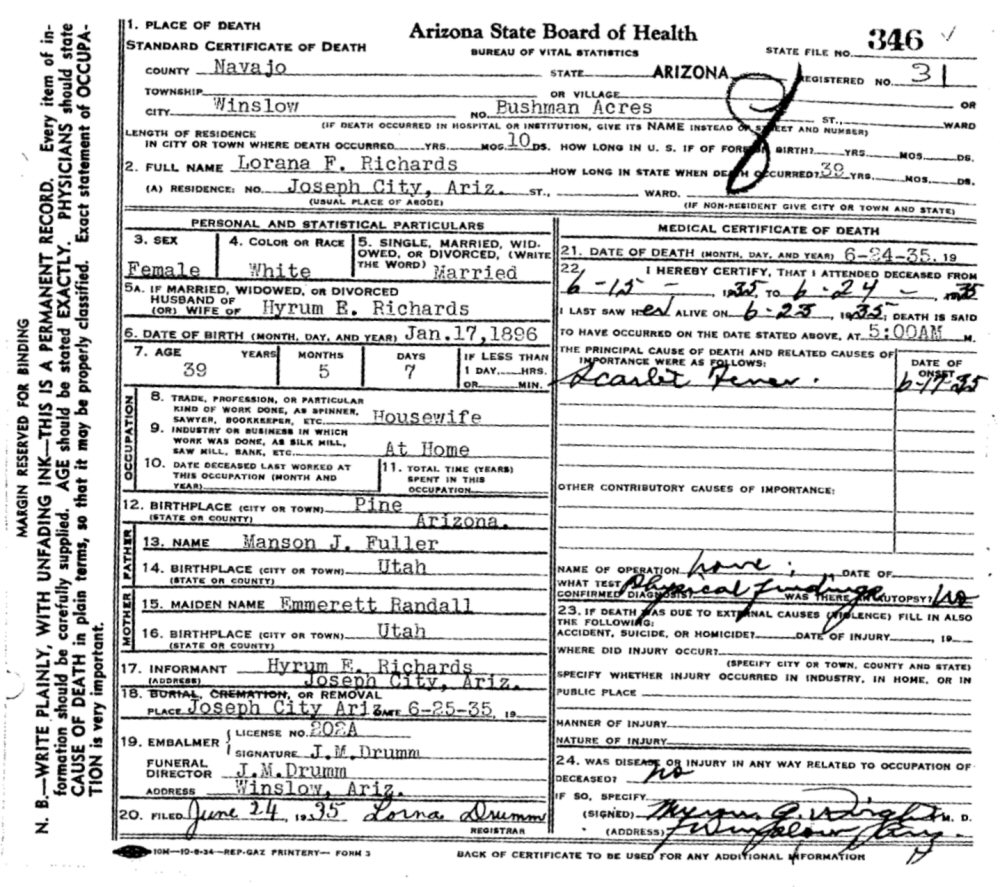 MARGIN RESERVED FOR BINDING
N. B.—WRITE PLAINLY, WITH UNFADING INK—THIS IS A PERMANENT RECORD. Every item of in-
formation should be carefully supplied. AGE should be stated EXACTLY. PHYSICIANS should state
CAUSE OF DEATH in plain terms, so that it may be properly classified. Exact statement of OCCUPA-
TION is very important.
1. PLACE OF DEATH
Arizona State Board of Health
STANDARD CERTIFICATE OF DEATH
BUREAU OF VITAL STATISTICS
STATE FILE NO. 346
COUNTY Navajo STATE ARIZONA REGISTERED NO. 31
TOWNSHIP OR VILLAGE OR
CITY Winslow NO. Bushman Acres ST., WARD
(IF DEATH OCCURRED IN HOSPITAL OR INSTITUTION, GIVE ITS NAME INSTEAD OF STREET AND NUMBER)
LENGTH OF RESIDENCE
IN CITY OR TOWN WHERE DEATH OCCURRED YRS. MOS. 10 DS. HOW LONG IN U. S. IF OF FOREIGN BIRTH? YRS. MOS. DS.
2. FULL NAME Lorana F. Richards HOW LONG IN STATE WHEN DEATH OCCURRED? 39 YRS. MOS. DS.
(A) RESIDENCE: NO. Joseph City, Ariz. ST., WARD.
(USUAL PLACE OF ABODE) (IF NON-RESIDENT GIVE CITY OR TOWN AND STATE)
8
PERSONAL AND STATISTICAL PARTICULARS
3. SEX Female
4. COLOR OR RACE White
5. SINGLE, MARRIED, WID-
OWED, OR DIVORCED, (WRITE
THE WORD) Married
5A. IF MARRIED, WIDOWED, OR DIVORCED
HUSBAND OF
(OR) WIFE OF Hyrum E. Richards
6. DATE OF BIRTH (MONTH, DAY, AND YEAR) Jan.17,1896
7. AGE YEARS MONTHS DAYS IF LESS THAN
39 5 7 1 DAY, HRS.
OR MIN.
OCCUPATION
8. TRADE, PROFESSION, OR PARTICULAR
KIND OF WORK DONE, AS SPINNER,
SAWYER, BOOKKEEPER, ETC. Housewife
9. INDUSTRY OR BUSINESS IN WHICH
WORK WAS DONE, AS SILK MILL,
SAW MILL, BANK, ETC. At Home
10. DATE DECEASED LAST WORKED AT
THIS OCCUPATION (MONTH AND
YEAR)
11. TOTAL TIME (YEARS)
SPENT IN THIS
OCCUPATION
12. BIRTHPLACE (CITY OR TOWN) Pine
(STATE OR COUNTY) Arizona.
FATHER
13. NAME Manson J. Fuller
14. BIRTHPLACE (CITY OR TOWN) Utah
(STATE OR COUNTY)
MOTHER
15. MAIDEN NAME Emmerett Randall
16. BIRTHPLACE (CITY OR TOWN) Utah
(STATE OR COUNTY)
17. INFORMANT Hyrum E. Richards
(ADDRESS) Joseph City, Ariz.
18. BURIAL, CREMATION, OR REMOVAL
PLACE Joseph City Ariz DATE 6-25-35, 19
19. EMBALMER LICENSE NO. 202A
SIGNATURE J.M.Drumm
FUNERAL
DIRECTOR J.M.Drumm
ADDRESS Winslow, Ariz.
20. FILED June 24, 1935 Lorna Drumm
REGISTRAR
10M—10-8-34—REP-GAZ PRINTERY— FORM 3
MEDICAL CERTIFICATE OF DEATH
21. DATE OF DEATH (MONTH, DAY, AND YEAR) 6-24-35. 19
22. I HEREBY CERTIFY, THAT I ATTENDED DECEASED FROM
6-15-, 1935, TO 6-24-, 1935
I LAST SAW HER ALIVE ON 6-23, 1935; DEATH IS SAID
TO HAVE OCCURRED ON THE DATE STATED ABOVE, AT 5:00AM M.
THE PRINCIPAL CAUSE OF DEATH AND RELATED CAUSES OF
IMPORTANCE WERE AS FOLLOWS:
DATE OF
ONSET
Scarlet Fever. 6-17-35
OTHER CONTRIBUTORY CAUSES OF IMPORTANCE:
NAME OF OPERATION none; DATE OF
WHAT TEST
CONFIRMED DIAGNOSIS? Physical findings WAS THERE AN AUTOPSY? No
23. IF DEATH WAS DUE TO EXTERNAL CAUSES (VIOLENCE) FILL IN ALSO
THE FOLLOWING:
ACCIDENT, SUICIDE, OR HOMICIDE? DATE OF INJURY, 19
WHERE DID INJURY OCCUR?
(SPECIFY CITY OR TOWN, COUNTY AND STATE)
SPECIFY WHETHER INJURY OCCURRED IN INDUSTRY, IN HOME, OR IN
PUBLIC PLACE
MANNER OF INJURY
NATURE OF INJURY
24. WAS DISEASE OR INJURY IN ANY WAY RELATED TO OCCUPATION OF
DECEASED? No
IF SO, SPECIFY
(SIGNED) Wright M. D.
(ADDRESS) Winslow Ariz.
BACK OF CERTIFICATE TO BE USED FOR ANY ADDITIONAL INFORMATION